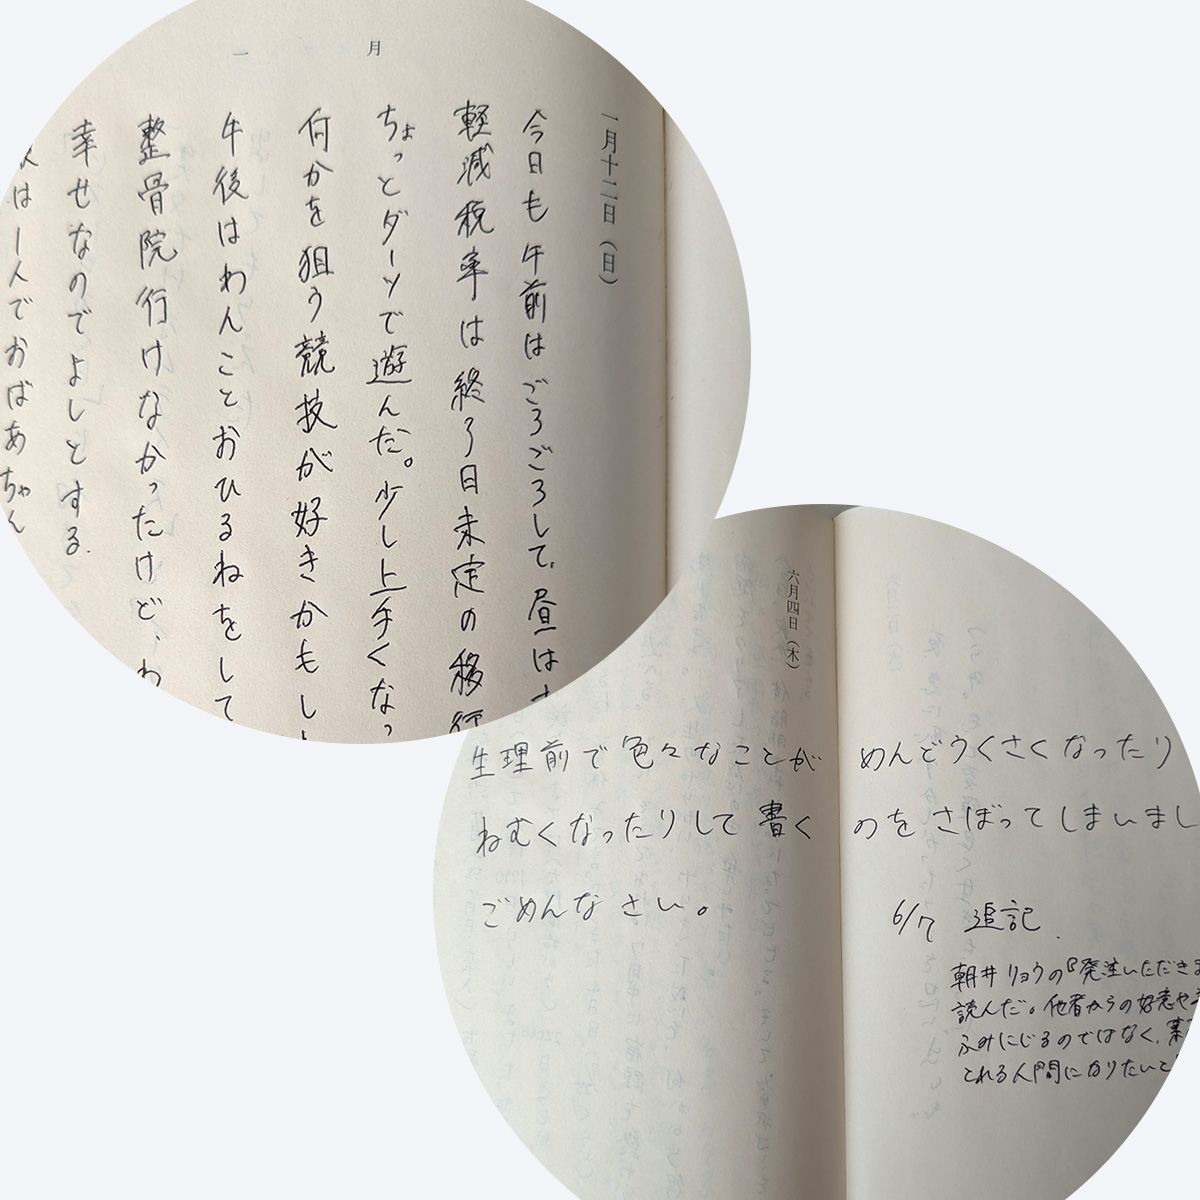 一月
一月十二日(日)
今日も午前はごろごろして、昼は
軽減税率は終了日未定の移行
ちょっとダーツで遊んだ。少し上手くなっ
何かを狙う競技が好きかもし
午後はわんことおひるねをして
整骨院行けなかったけど、わ
幸せなのでよしとする。
は一人でおばあちゃん
六月四日(木)
生理前で色々なことがめんどうくさくなったり
ねむくなったりして書くのをさぼってしまいまし
ごめんなさい。
6/7 追記.
朝井リョウの『発注いただきま
読んだ。他者からの好意や
ふみにじるのではなく、
とれる人間になりたいと